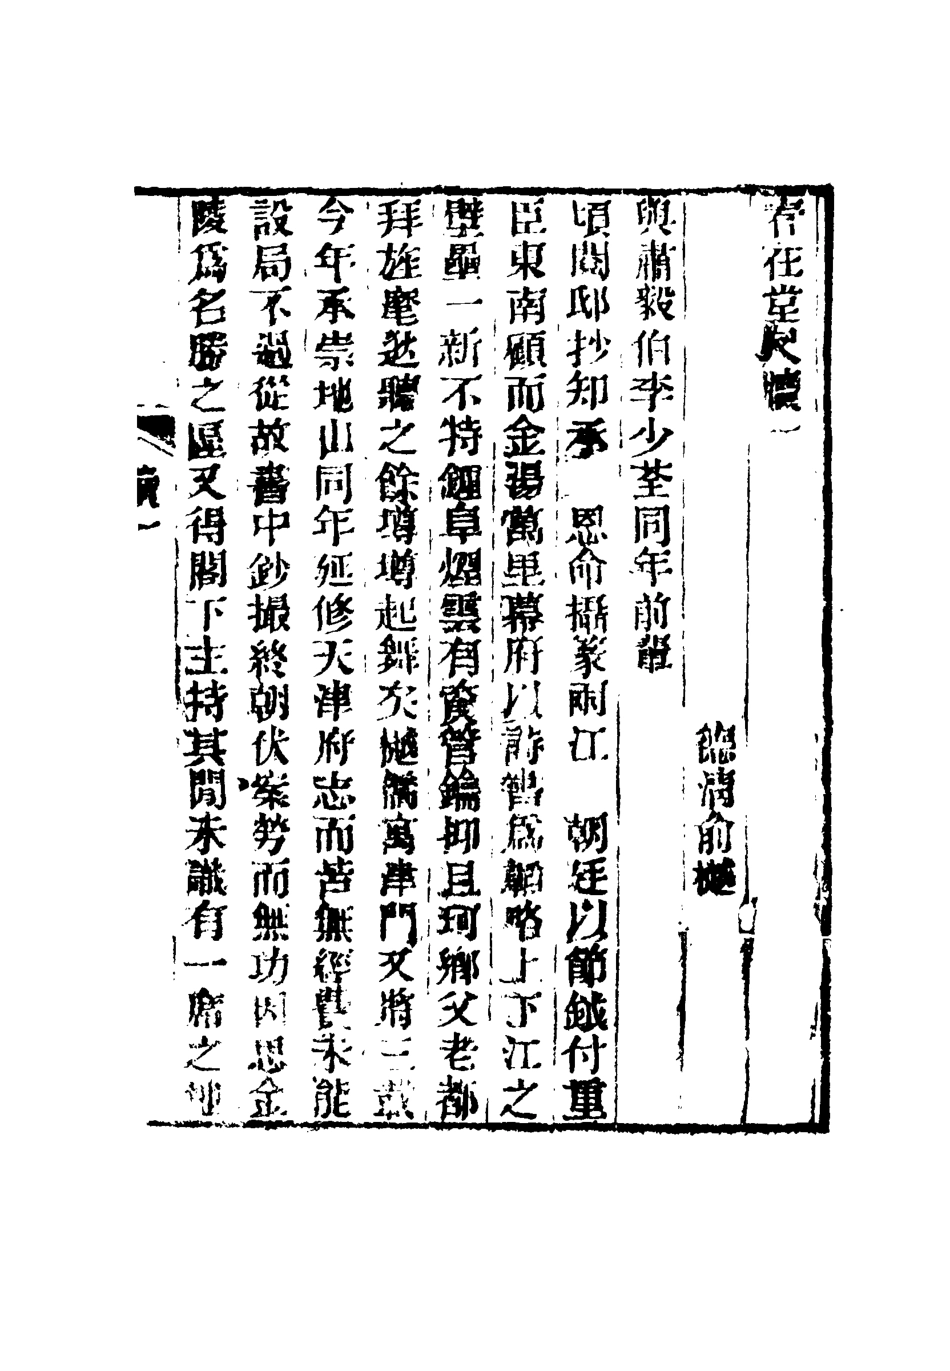 春在堂尺牘一
德清俞樾
與肅毅伯李少荃同年前輩
頃閱邸抄知承 恩命攝篆兩江 朝廷以節鉞付重
臣東南顧而金湯萬里幕府以詩書爲韜略上下江之
壁壘一新不特鍾阜煙雲有資管鑰抑且珂鄉父老都
拜旌麾逖聽之餘墫墫起舞矣樾僑寓津門又將三載
今年承崇地山同年延修天津府志而苦無經費未能
設局不過從故書中鈔撮終朝伏案勞而無功因思金
陵爲名勝之區又得閣下主持其間未識有一席之地
牘一